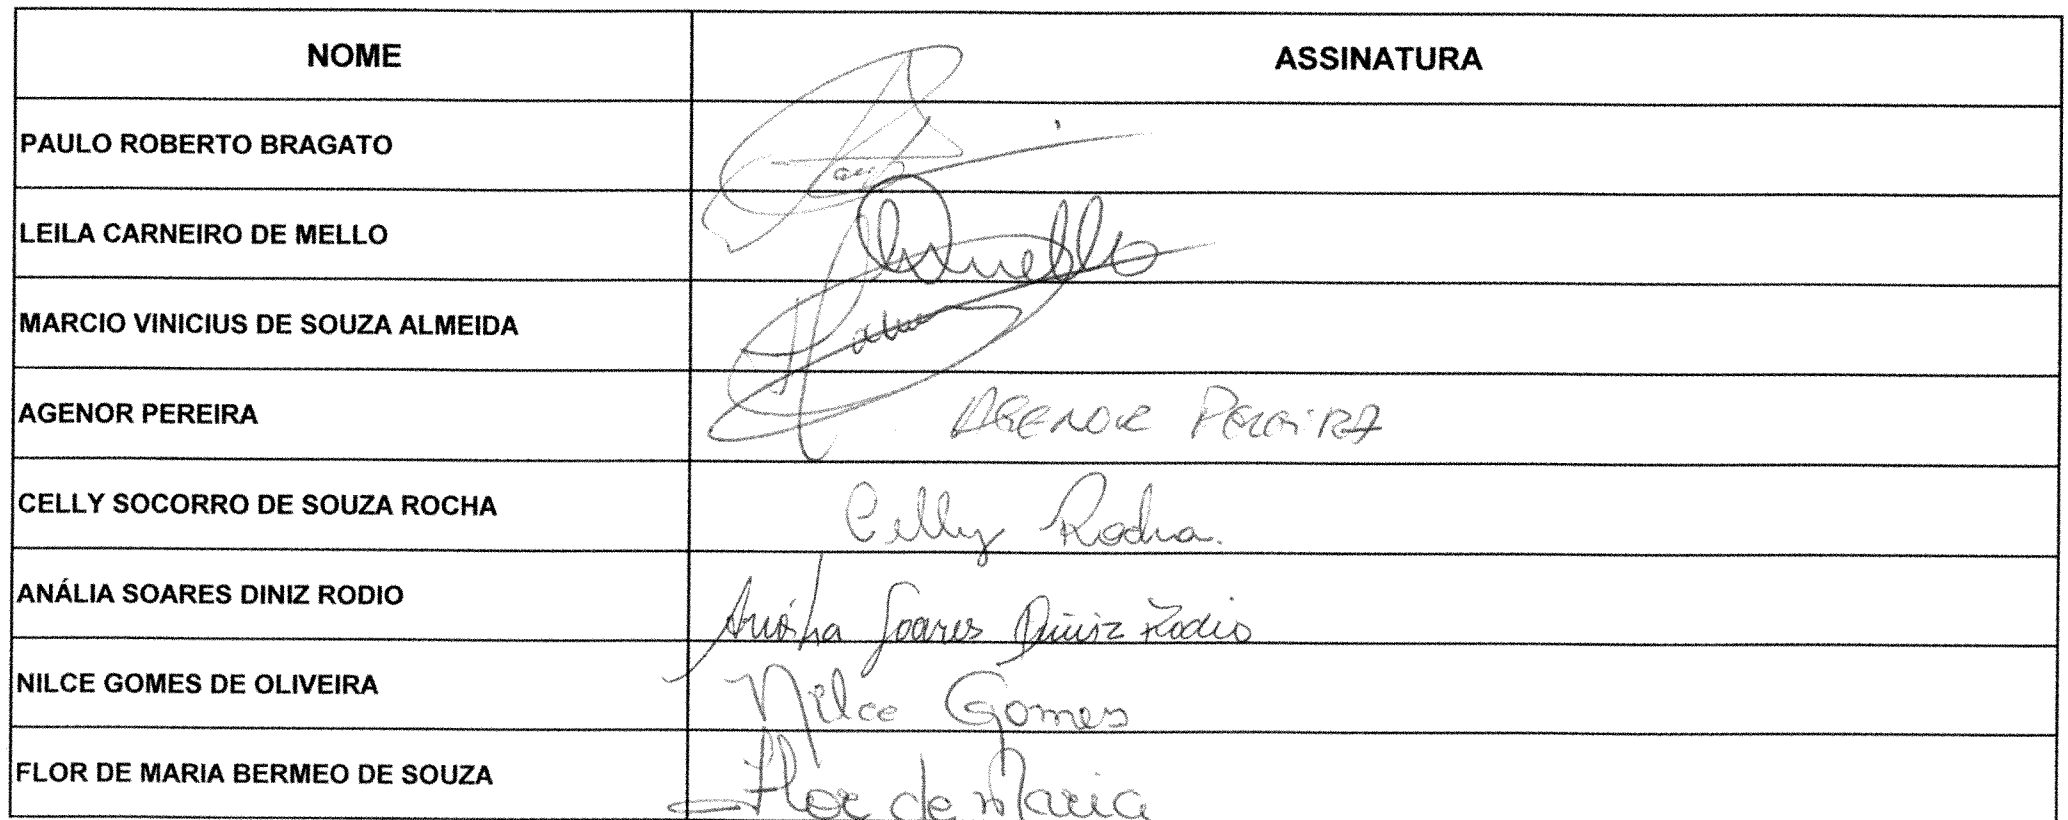 NOME ASSINATURA
PAULO ROBERTO BRAGATO
LEILA CARNEIRO DE MELLO
MARCIO VINICIUS DE SOUZA ALMEIDA
AGENOR PEREIRA AGENOR PEREIRA
CELLY SOCORRO DE SOUZA ROCHA Celly Rocha.
ANÁLIA SOARES DINIZ RODIO Anália Soares Diniz Rodio
NILCE GOMES DE OLIVEIRA Nilce Gomes
FLOR DE MARIA BERMEO DE SOUZA Flor de Maria